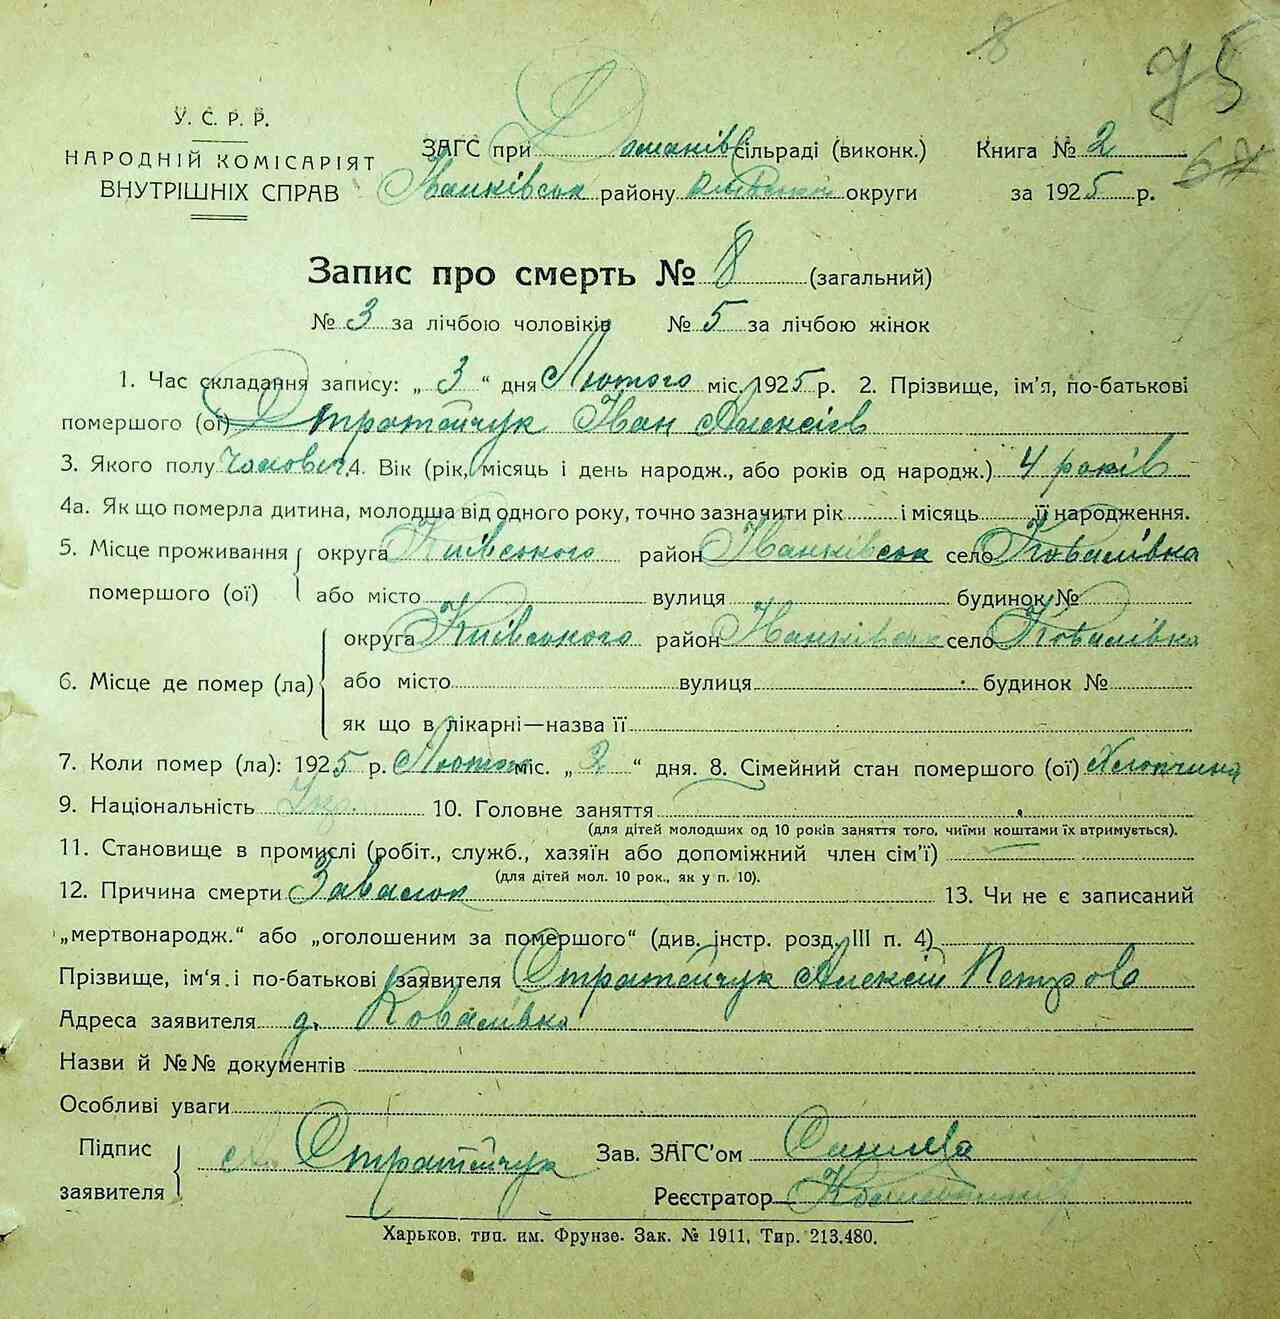 8
75
У. С. Р. Р.
НАРОДНІЙ КОМІСАРІЯТ
ВНУТРІШНІХ СПРАВ
ЗАГС при сільраді (виконк.) Книга № 2
Іванківськ району округи за 1925 р.
Запис про смерть № 8 (загальний)
№ 3 за лічбою чоловіків № 5 за лічбою жінок
1. Час складання запису: „ 3 “ дня Лютого міс. 1925 р. 2. Прізвище, ім'я, по-батькові
помершого (ої) Стратейчук Іван Алексієв
3. Якого полу Чоловіч. 4. Вік (рік, місяць і день народж., або років од народж.) 4 років
4а. Як що померла дитина, молодша від одного року, точно зазначити рік і місяць її народження.
5. Місце проживання помершого (ої) округа Київського район Іванківськ село Ковалівка
або місто вулиця будинок №
6. Місце де помер (ла) округа Київського район Іванківськ село Ковалівка
або місто вулиця будинок №
як що в лікарні—назва її
7. Коли помер (ла): 1925 р. Лютого міс. „ 2 “ дня. 8. Сімейний стан помершого (ої) Хлопчина
9. Національність Укр. 10. Головне заняття
(для дітей молодших од 10 років заняття того, чиїми коштами їх втримується).
11. Становище в промислі (робіт., служб., хазяїн або допоміжний член сім'ї)
(для дітей мол. 10 рок., як у п. 10).
12. Причина смерти 13. Чи не є записаний
„мертвонародж.“ або „оголошеним за помершого“ (див. інстр. розд. III п. 4)
Прізвище, ім'я і по-батькові заявителя Стратейчук Алексій Петров
Адреса заявителя д. Ковалівка
Назви й №№ документів
Особливі уваги
Підпис заявителя Стратейчук Зав. ЗАГС'ом
Реєстратор
Харьков, тип. им. Фрунзе. Зак. № 1911, Тир. 213.480.